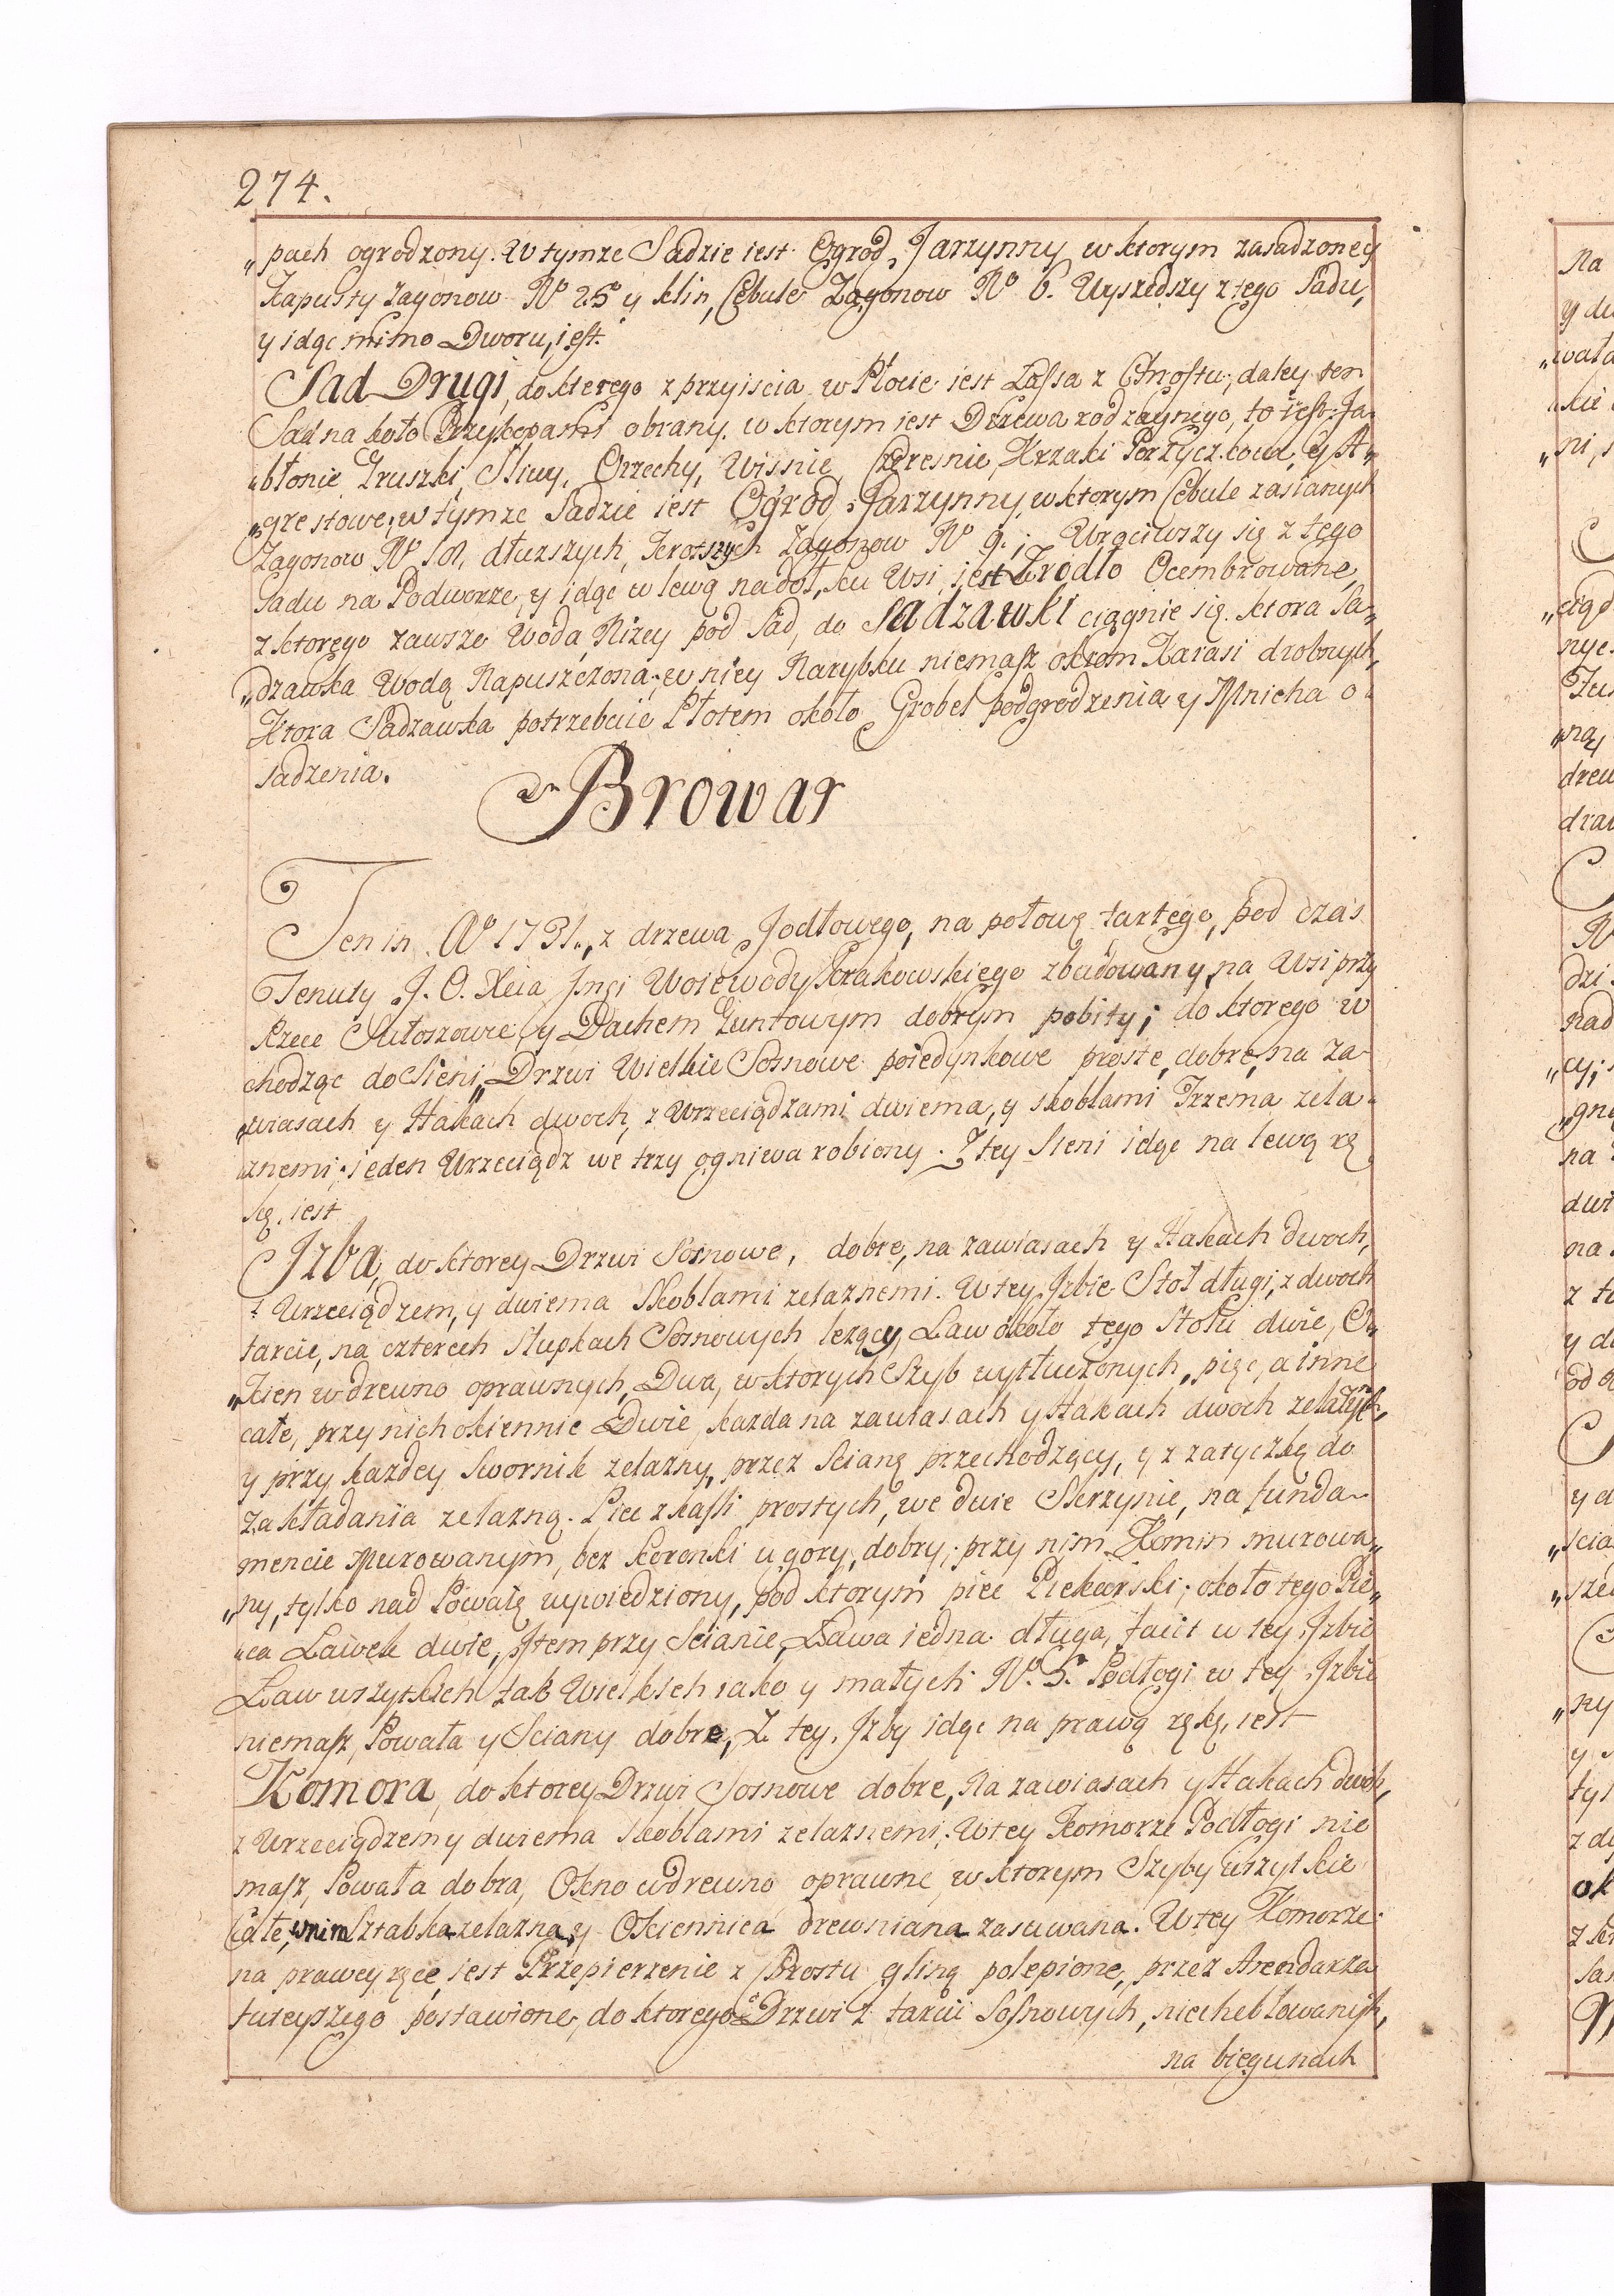 274.
„pach ogrodzony. W tymze Sadzie iest Ogrod Jarzynny w ktorym zasadzoney
Kapusty Zagonow No 25 y klin, Cebule Zagonow No 6. Wyszedszy z tego Sadu,
y idąc mimo Dworu, iest.
Sad Drugi, do ktorego z przyiscia w Płocie iest Lassa z Chrostu, daley ten
Sad na koło Przykopami obrany. w ktorym iest Drzewa rodzaynego, to iest: Ja„
„błonie Gruszki, Sliwy, Orzechy, Wisnie, Czeresnie, Krzaki Porzyczkowe, y A„
„grestowe, w tymze Sadzie iest Ogrod Jarzynny, w ktorym Cebule zasianych
Zagonow No 18, dłuzszych, krotszych Zagonow No 9.; Wrociwszy się z tego
Sadu na Podworze, y idąc w lewą nadoł, ku Wsi, iest Zrodło Ocembrowane,
z ktorego zawsze Woda Nizey pod Sad, do Sadzawki ciągnie się. ktora Sa„
„dzawka Wodą Napuszczona, w niey Narybku niemasz okrom Karasi drobnych,
Ktora Sadzawka potrzebuie Płotem około Grobel podgrodzenia y Mnicha o„
sadzenia.
Browar
Ten in Ao 1731., z drzewa Jodłowego, na połowę tartego, pod czas
Tenuty J. O. Xcia Jmci Woiewody Krakowskiego zbudowany, na Wsi przy
Rzece Miłoszowie, y Dachem Guntowym dobrym pobity; do ktorego w
chodząc do Sieni, Drzwi Wielkie Sosnowe poiedynkowe proste, dobre, na za„
„wiasach y Hakach dwoch, z Wrzeciądzami dwiema, y skoblami Trzema zela„
„znemi; ieden Wrzeciądz we trzy ogniwa robiony. Z tey Sieni idąc na lewą rę
kę, iest
Izba, do ktorey Drzwi Sosnowe, dobre, na zawiasach y Hakach dwoch,
z Wrzeciądzem, y dwiema Skoblami zelaznemi. W tey Izbie Stoł długi, z dwoch
tarcic, na czterech Słupkach Sosnowych lezący, Law około tego Stołu dwie, O„
„kien w drewno oprawnych, Dwa, w ktorych Szyb wytłuczonych, pięc, a inne
całe, przy nich okiennic Dwie, kazda na zawiasach y Hakach dwoch zelaznych,
y przy kazdey Swornik zelazny, przez Scianę przechodzący, y z zatyczką do
zakładania zelazną. Piec z kafli prostych, we dwie Skrzynie, na funda„
mencie Murowanym, bez Koronki u gory, dobry; przy nim Komin murowa„
„ny, tylko nad Powałę wywiedziony, pod ktorym piec Piekarski; około tego Pie„
„ca Ławek dwie, Item przy Scianie, Ława iedna długa, facit w tey Izbie
Ław wszytkich tak Wielkich iako y małych No. 5. Podłogi w tey Izbie
niemasz, Powała y Sciany dobre, Z tey Izby idąc na prawą rękę, iest
Komora, do ktorey Drzwi Sosnowe dobre, na zawiasach y Hakach dwoch,
z Wrzeciądzem y dwiema Skoblami zelaznemi; W tey Komorze Podłogi nie
masz, Powała dobra, Okno w drewno oprawne, w ktorym Szyby wszytkie
Całe, w nim Sztabka zelazna, y Okiennica drewniana zasuwana. W tey Komorze
na prawey ręce, iest Przepierzenie z Chrostu gliną polepione, przez Arendarza
tuteyszego postawione, do ktorego Drzwi z tarcic Sosnowych, niecheblowanych,
na biegunach